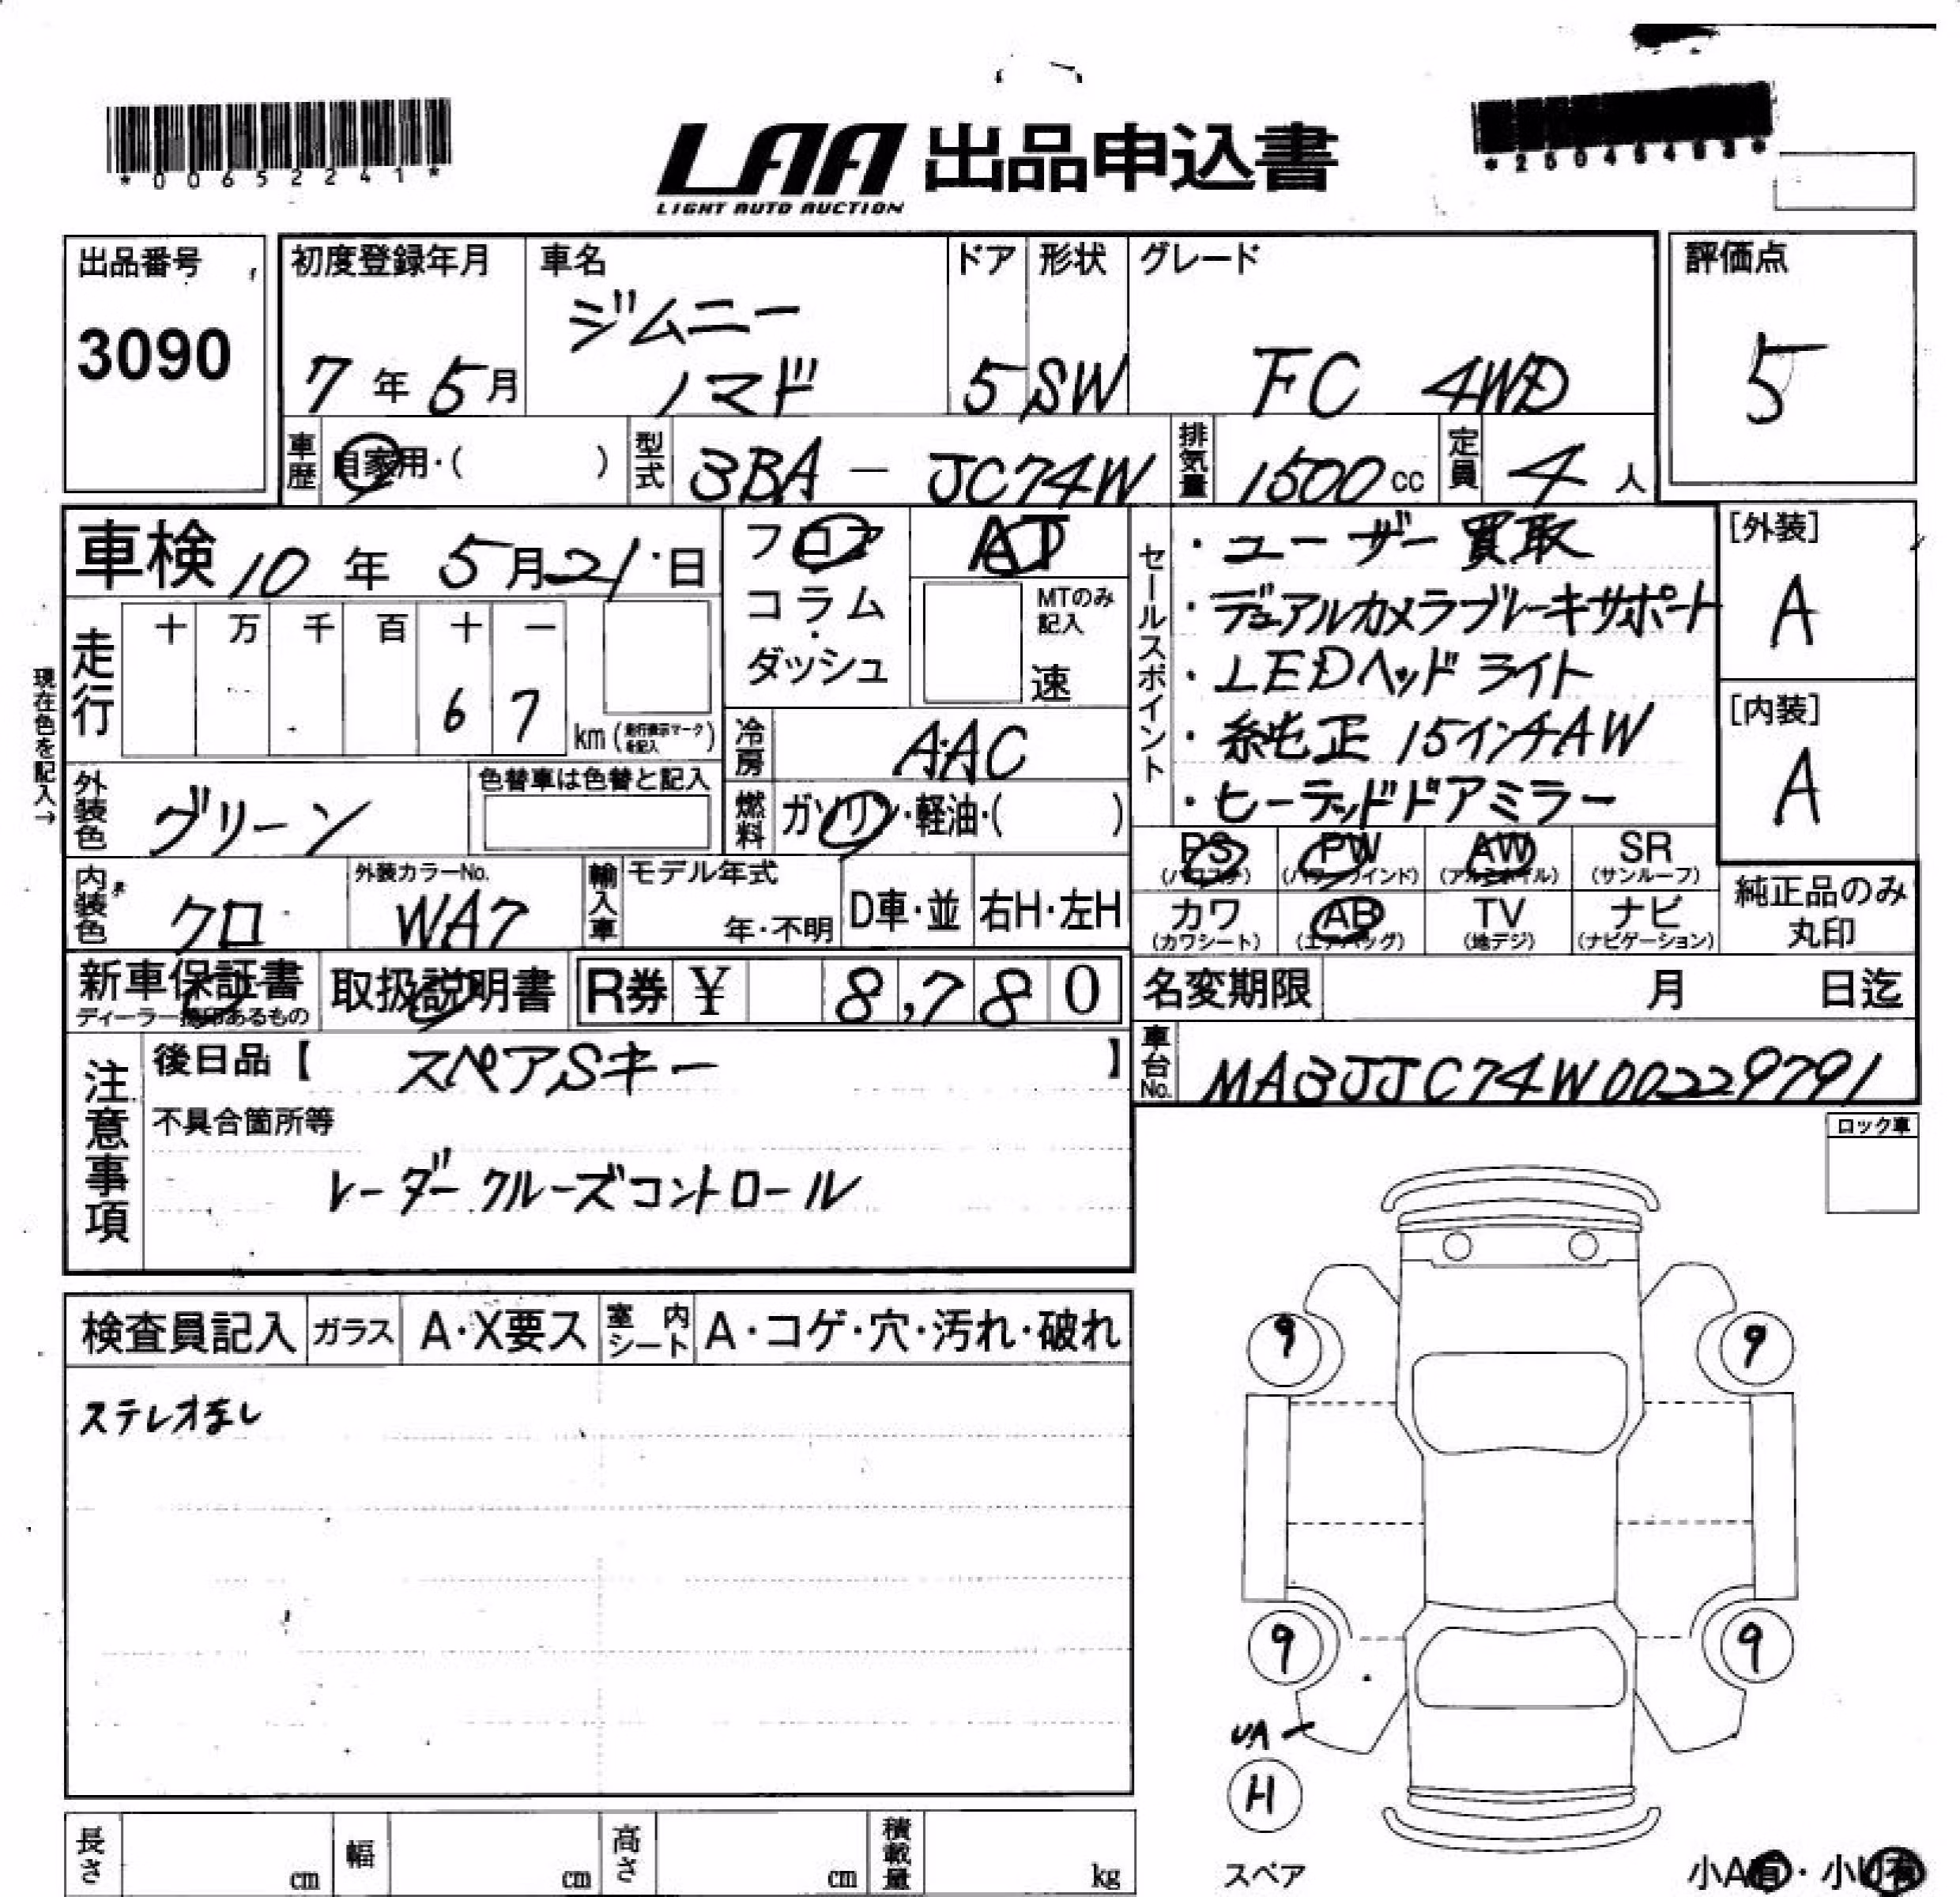 *00652241*
LAA 出品申込書
LIGHT AUTO AUCTION
出品番号
3090
初度登録年月
7年5月
車名
ジムニー
ノマド
ドア
5
形状
SW
グレード
FC 4WD
評価点
5
車歴
自家用・( )
型式
3BA - JC74W
排気量
1500cc
定員
4人
車検 10年5月21日
フロア
コラム
・
ダッシュ
AT
MTのみ
記入
速
セールスポイント
・ユーザー買取
・デュアルカメラブレーキサポート
・LEDヘッドライト
・純正15インチAW
・ヒーテッドドアミラー
[外装]
A
[内装]
A
現在色を記入→
走行
十 万 千 百 十 一
6 7
km(走行表示マークを記入)
冷房
AAC
外装色
グリーン
色替車は色替と記入
燃料
ガソリン・軽油・( )
内装色
クロ
外装カラーNo.
WA7
輸入車
モデル年式
年・不明
D車・並
右H・左H
PS
(パワステ)
PW
(パワーウインド)
AW
(アルミホイル)
SR
(サンルーフ)
カワ
(カワシート)
AB
(エアバッグ)
TV
(地デジ)
ナビ
(ナビゲーション)
純正品のみ
丸印
新車保証書
ディーラー捺印あるもの
取扱説明書
R券 ¥ 8,780
名変期限 月 日迄
車台No.
MA3JJC74W00229791
注意事項
後日品【 スペアSキー 】
不具合箇所等
レーダークルーズコントロール
ロック車
検査員記入
ガラス
A・X要ス
室内シート
A・コゲ・穴・汚れ・破れ
ステレオなし
9
9
9
9
UA
H
スペア
小A有・小U有
長さ cm
幅 cm
高さ cm
積載量 kg